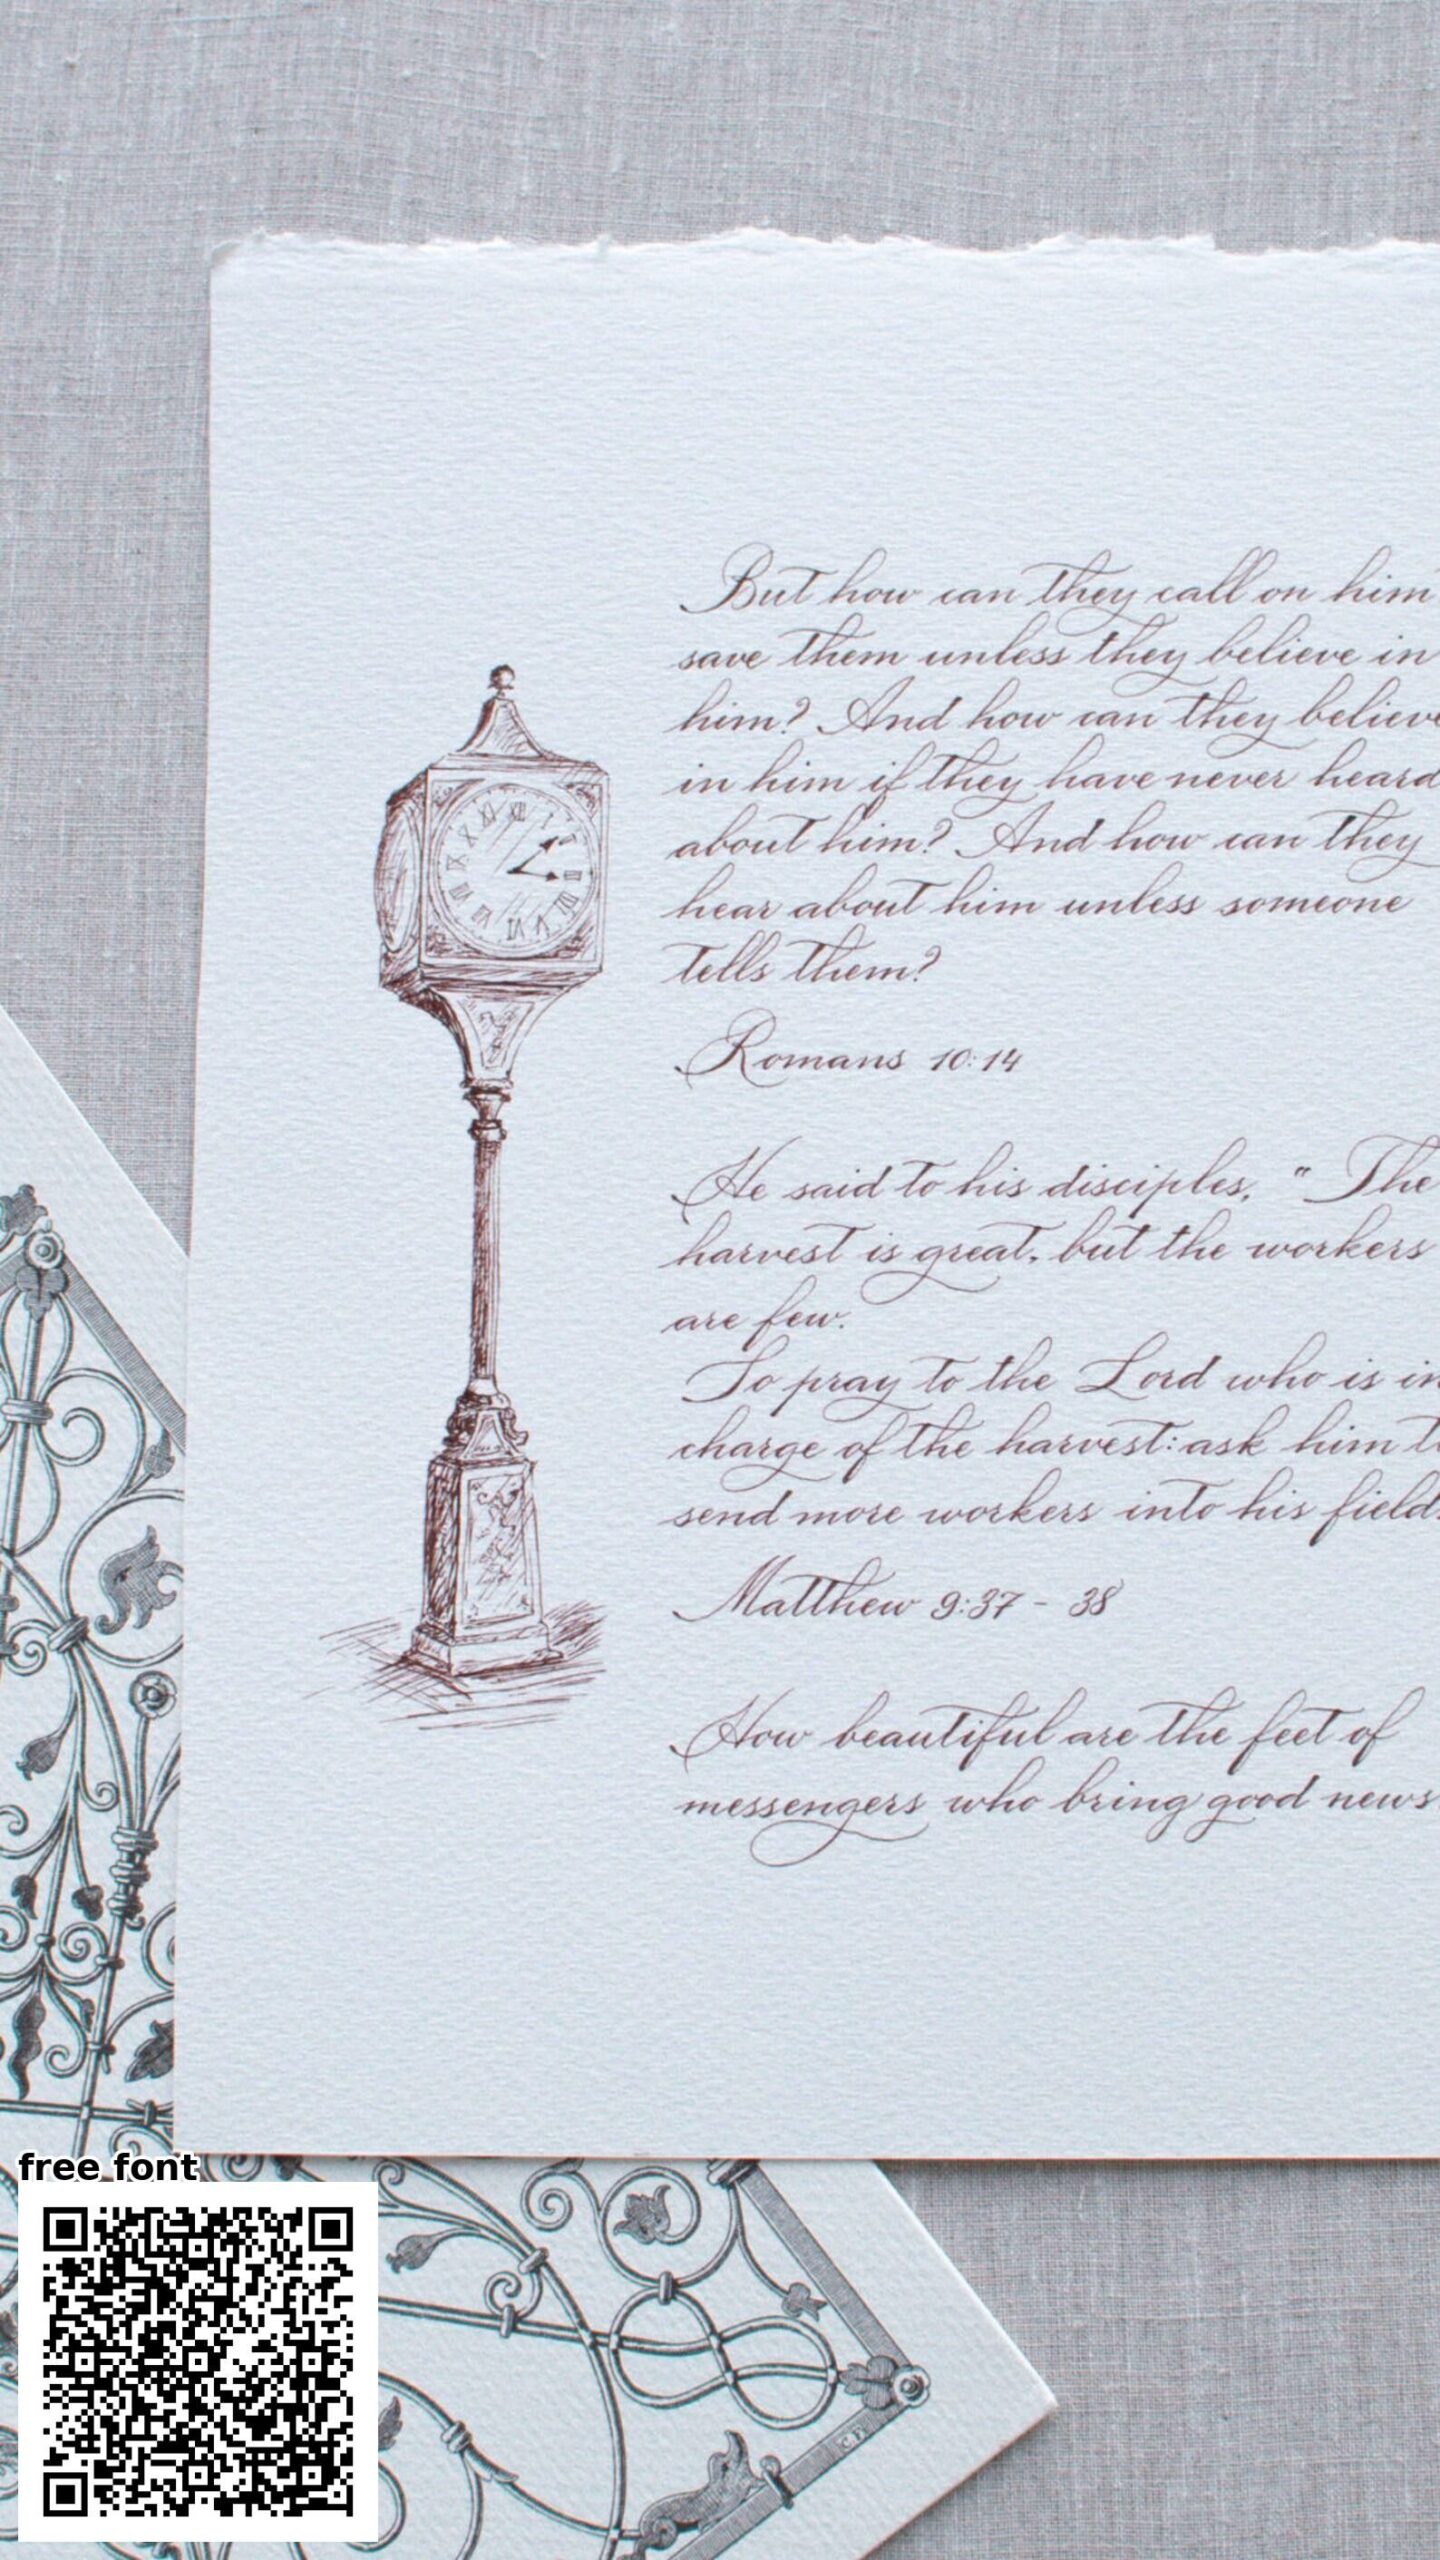 But how can they call on him
save them unless they believe in
him? And how can they believe
in him if they have never heard
about him? And how can they
hear about him unless someone
tells them?
Romans 10:14
He said to his disciples, "The
harvest is great, but the workers
are few.
So pray to the Lord who is in
charge of the harvest: ask him to
send more workers into his fields
Matthew 9:37 - 38
How beautiful are the feet of
messengers who bring good news
free font